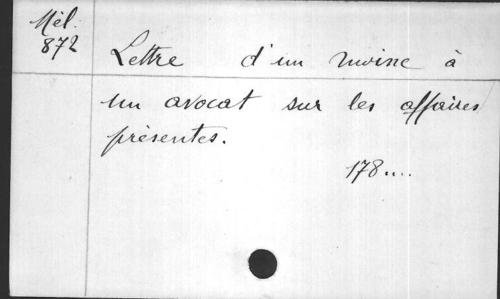 Mél.
872
Lettre d'un moine à
un avocat sur les affaires
présentes.
178....